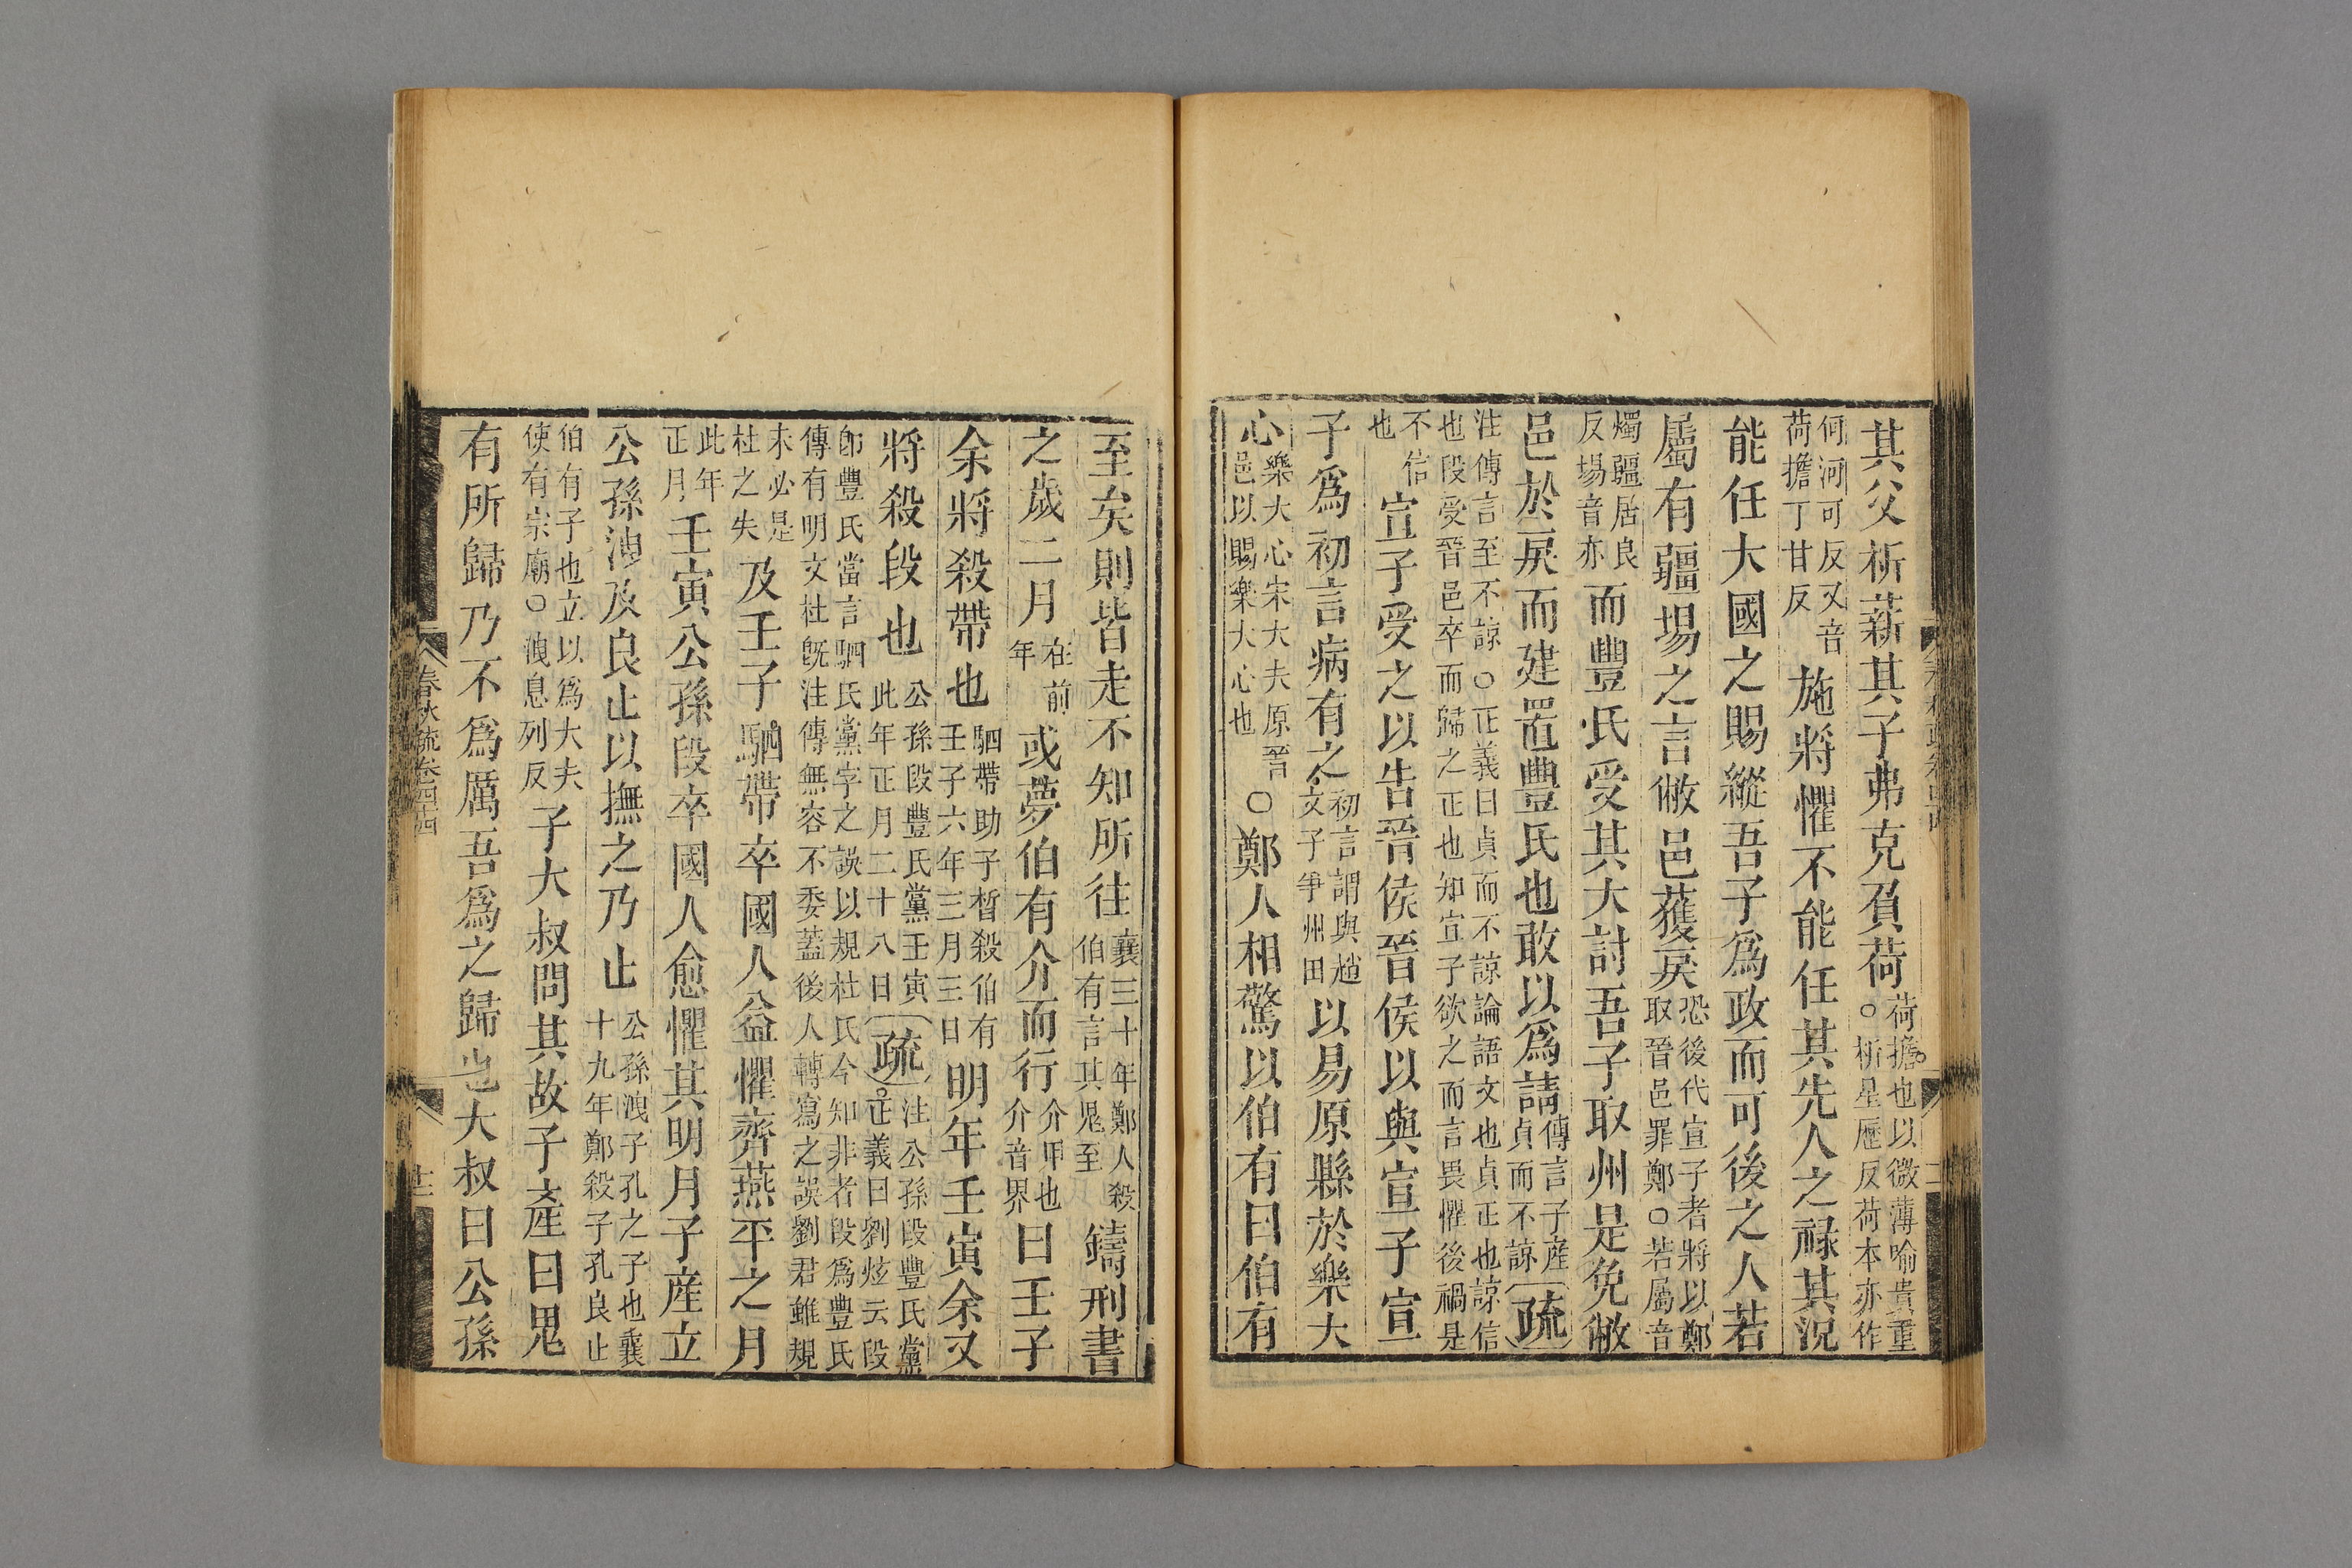 其父析薪其子弗克負荷荷擔也以微薄喻貴重○析星歷反荷本亦作
何河可反又音荷擔丁甘反施將懼不能任其先人之祿其況
能任大國之賜縱吾子爲政而可後之人若
屬有疆場之言敝邑獲戾恐後代宣子者將以鄭取晉邑罪鄭○若屬音
燭疆居良反場音亦而豐氏受其大討吾子取州是免敝
邑於戾而建置豐氏也敢以爲請傳言子產貞而不諒疏
注傳言至不諒○正義曰貞而不諒論語文也貞正也諒信也段受晉邑卒而歸之正也知宣子欲之而言畏懼後禍是
不信也宣子受之以告晉侯晉侯以與宣子宣
子爲初言病有之初言謂與趙文子爭州田以易原縣於樂大
心樂大心宋大夫原晉邑以賜樂大心也○鄭人相驚以伯有曰伯有
至矣則皆走不知所往襄三十年鄭人殺伯有言其鬼至鑄刑書
之歲二月在前年或夢伯有介而行介甲也介音界曰壬子
余將殺帶也駟帶助子晳殺伯有壬子六年三月三日明年壬寅余又
將殺段也公孫段豐氏黨壬寅此年正月二十八日疏注公孫段豐氏黨○正義曰劉炫云段
卽豐氏當言駟氏黨字之誤以規杜氏今知非者段爲豐氏傳有明文杜旣注傳無容不委蓋後人轉寫之誤劉君雖規
未必是杜之失及壬子駟帶卒國人益懼齊燕平之月
此年正月壬寅公孫段卒國人愈懼其明月子產立
公孫洩及良止以撫之乃止公孫洩子孔之子也襄十九年鄭殺子孔良止
伯有子也立以爲大夫使有宗廟○洩息列反子大叔問其故子產曰鬼
有所歸乃不爲厲吾爲之歸也大叔曰公孫
春秋疏卷四十四